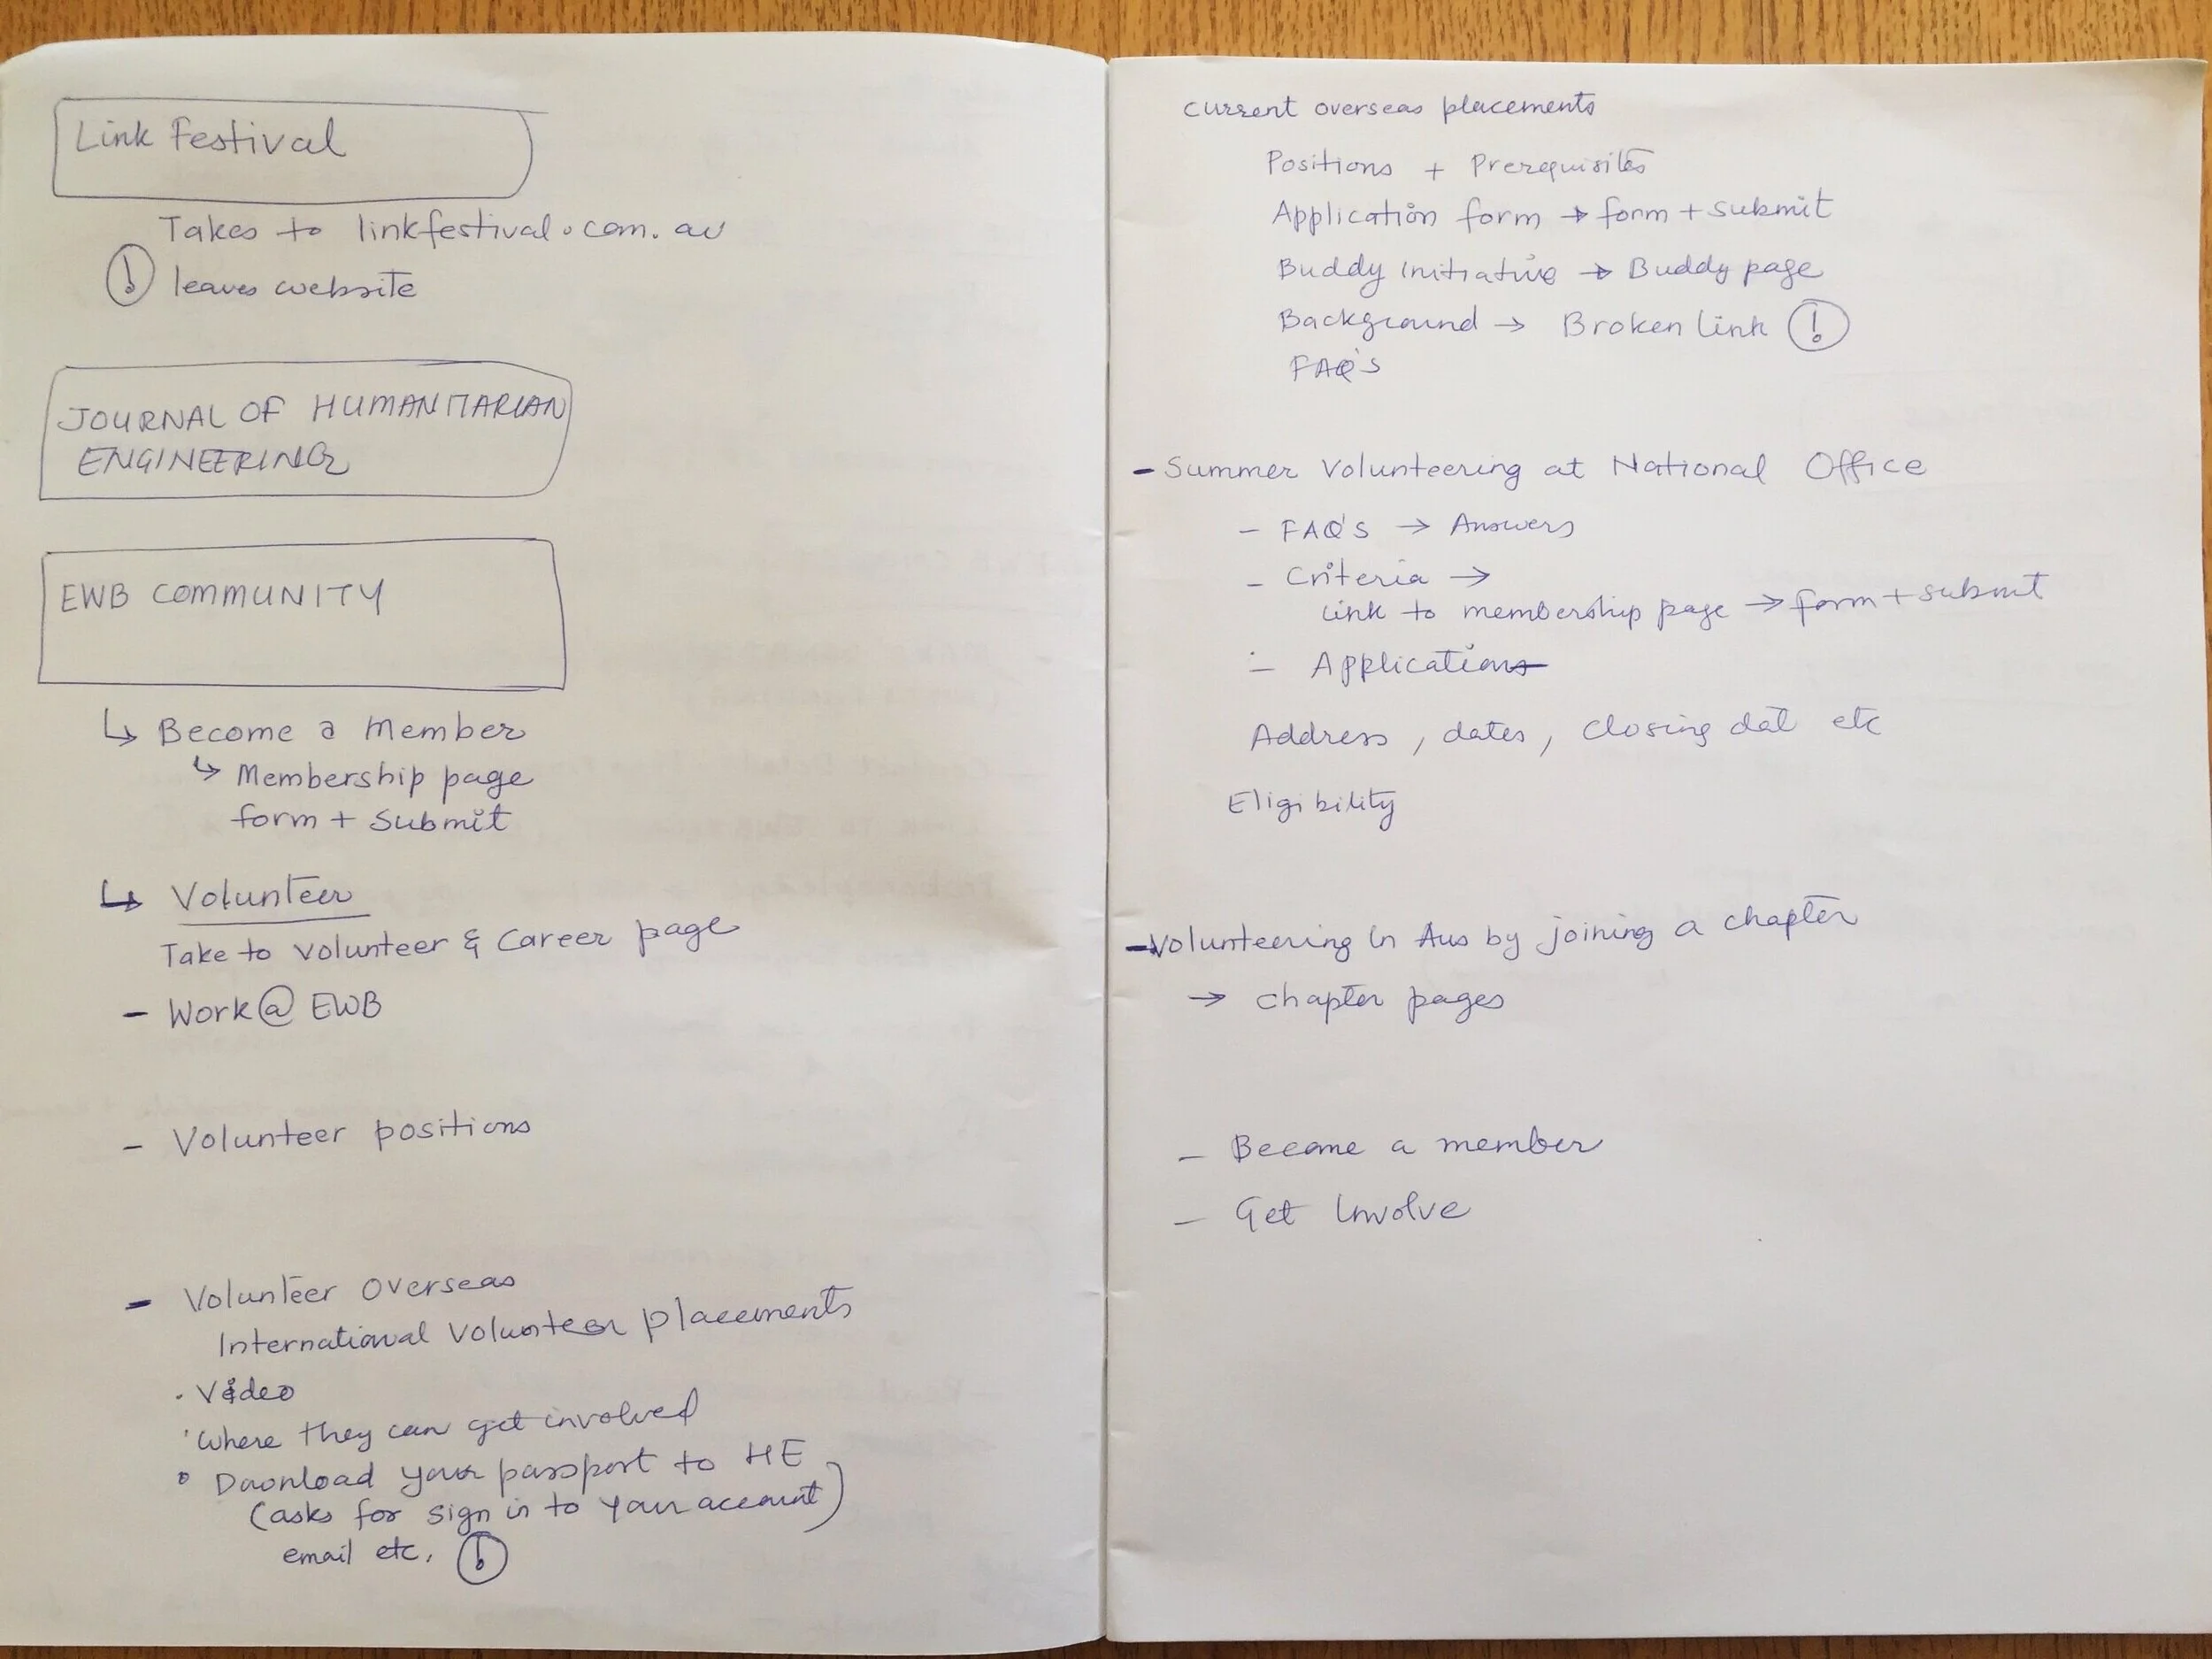 Link Festival
Takes to linkfestival.com.au
! leaves website
JOURNAL OF HUMANITARIAN
ENGINEERING
EWB COMMUNITY
↳ Become a member
↳ Membership page
form + Submit
↳ Volunteer
Take to Volunteer & Career page
- Work@EWB
- Volunteer positions
- Volunteer Overseas
International Volunteer placements
. Video
· Where they can get involved
• Download your passport to HE
(asks for sign in to your account)
email etc. !
current overseas placements
Positions + Prerequisites
Application form → form + submit
Buddy Initiative → Buddy page
Background → Broken link !
FAQ's
- Summer Volunteering at National Office
- FAQ's → Answers
- Criteria →
Link to membership page → form + submit
- Applications
Address, dates, closing dat etc
Eligibility
- Volunteering In Aus by joining a chapter
→ chapter pages
- Become a member
- Get Involve